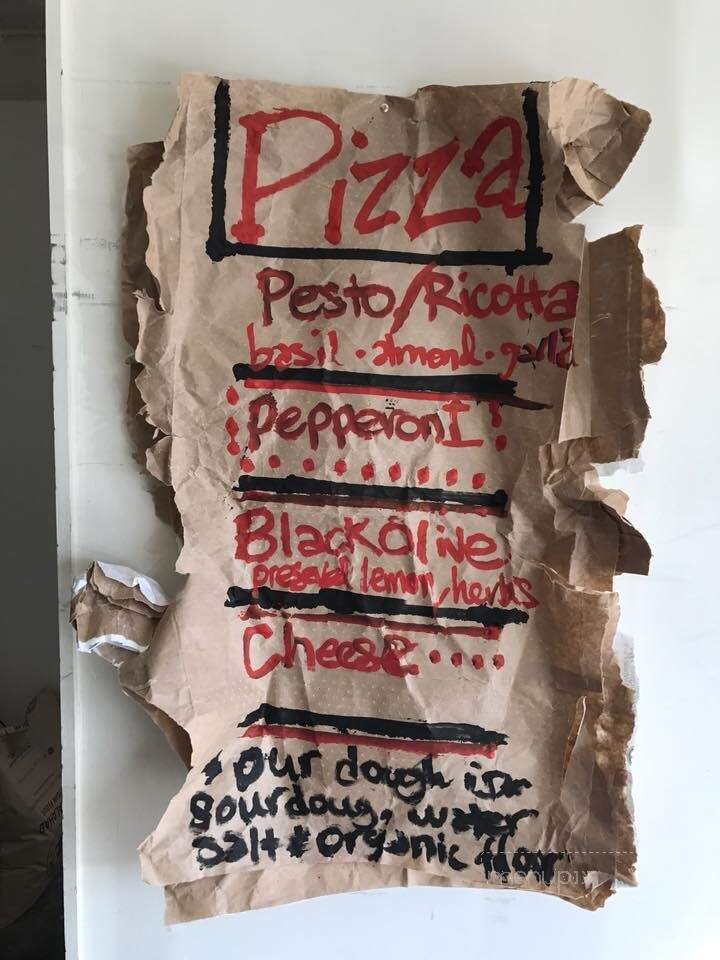 Pizza
Pesto/Ricotta
basil · almond ·
PepperonI
Black Olive
preseved lemon, herbs
Cheese....
* our dough is
sourdoug, water
salt & organic flour